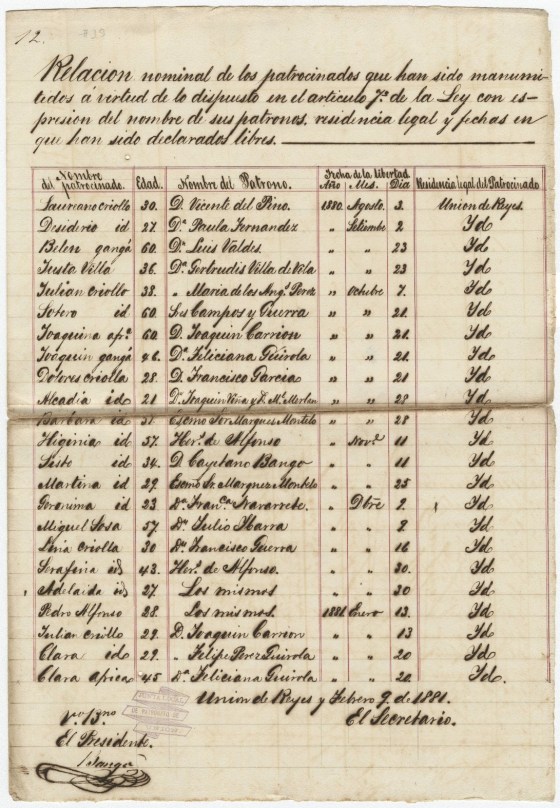 12.
Relacion nominal de los patrocinados que han sido manumi-
tidos á virtud de lo dispuesto en el artículo 7º de la Ley con es-
presion del nombre de sus patronos, residencia legal y fechas en
que han sido declarados libres.
Nombre del patrocinado. Edad. Nombre del Patrono. Fecha de la libertad. Año Mes. Dia Residencia legal del Patrocinado
Laureano criollo 30. D. Vicente del Pino. 1880. Agosto. 3. Union de Reyes.
Desiderio id 27. Dª Paula Fernandez " Setiembe 2 Yd
Belen gangá 60. Dn Luis Valdes. " " 23 Yd
Justa Villa 36. Dª Gertrudis Villa de Vila " " 23 Yd
Julian Criollo 38. " Maria de los Angs Perez " Octubre 7. Yd
Sotero id 60. Sres Campos y Guerra " " 21. Yd
Joaquina afrª 60. D. Joaquin Carrion " " 21. Yd
Joaquin gangá 46. Dª Feliciana Guirola " " 21. Yd
Dolores criolla 28. D. Francisco Garcia " " 21. Yd
Alcadia id 21 Dn Joaquin Viña y D. Ml Merlan " " 28 Yd
Barbara id 31 Escmo Sor Marques Montelo " " 28 Yd
Higinia id 57. Hers de Alfonso " Novre 11 Yd
Sisto id 34. D. Cayetano Bango " " 11 Yd
Martina id 29. Escmo Sr Marquez Montelo " " 25 Yd
Geronima id 23 Dª Francª Navarrete. " Dbre 2. Yd
Miguel Sosa 57 Dn Julio Ybarra " " 2 Yd
Lina Criolla 30 Dn Francisco Guerra " " 16 Yd
Serafina id 43. Hers de Alfonso. " " 20. Yd
Adelaida id 27. Los mismos " " 20 Yd
Pedro Alfonso 28. Los mismos. 1881 Enero 13. Yd
Julian criollo 29. D. Joaquin Carrion " " 13 Yd
Clara id 29. " Felipe Perez Guirola " " 20 Yd
Clara africa 45 Dª Feliciana Guirola " " 20. Yd.
Union de Reyes y Febrero 9. de 1881.
Vº Bno El Secretario.
El Presidente.